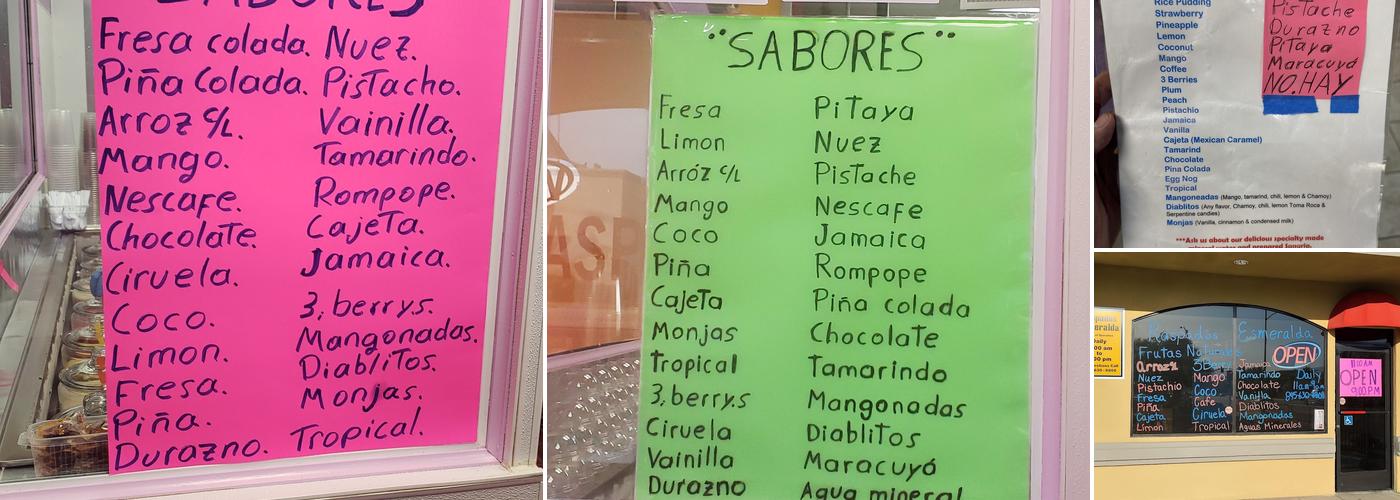 SABORES
Fresa colada. Nuez.
Piña Colada. Pistacho.
Arroz C/L. Vainilla.
Mango. Tamarindo.
Nescafe. Rompope.
Chocolate. Cajeta.
Ciruela. Jamaica.
Coco. 3, berrys.
Limon. Mangonadas.
Fresa. Diablitos.
Piña. Monjas.
Durazno. Tropical.
"SABORES"
Fresa Pitaya
Limon Nuez
Arróz C/L Pistache
Mango Nescafe
Coco Jamaica
Piña Rompope
Cajeta Piña colada
Monjas Chocolate
Tropical Tamarindo
3, berry.s Mangonadas
Ciruela Diablitos
Vainilla Maracuyá
Durazno Agua mineral
Rice Pudding
Strawberry
Pineapple
Lemon
Coconut
Mango
Coffee
3 Berries
Plum
Peach
Pistachio
Jamaica
Vanilla
Cajeta (Mexican Caramel)
Tamarind
Chocolate
Pina Colada
Egg Nog
Tropical
Mangoneadas (Mango, tamarind, chili, lemon & Chamoy)
Diablitos (Any flavor, Chamoy, chili, lemon Toma Roca &
Serpentine candies)
Monjas (Vanilla, cinnamon & condensed milk)
***Ask us about our delicious specialty made
mineral water and prepared Jangrio.
Pistache
Durazno
Pitaya
Maracuyá
NO.HAY
Raspados Esmeralda
Frutas Naturales
OPEN
Arroz
Nuez
Pistachio
Fresa
Piña
Cajeta
Limon
3 Berry
Mango
Coco
Cafe
Ciruela
Tropical
Jamaica
Tamarindo
Chocolate
Vanilla
Diablitos
Mangonadas
Aguas Minerales
Daily
11:00 AM
OPEN
9:00 PM
Daily